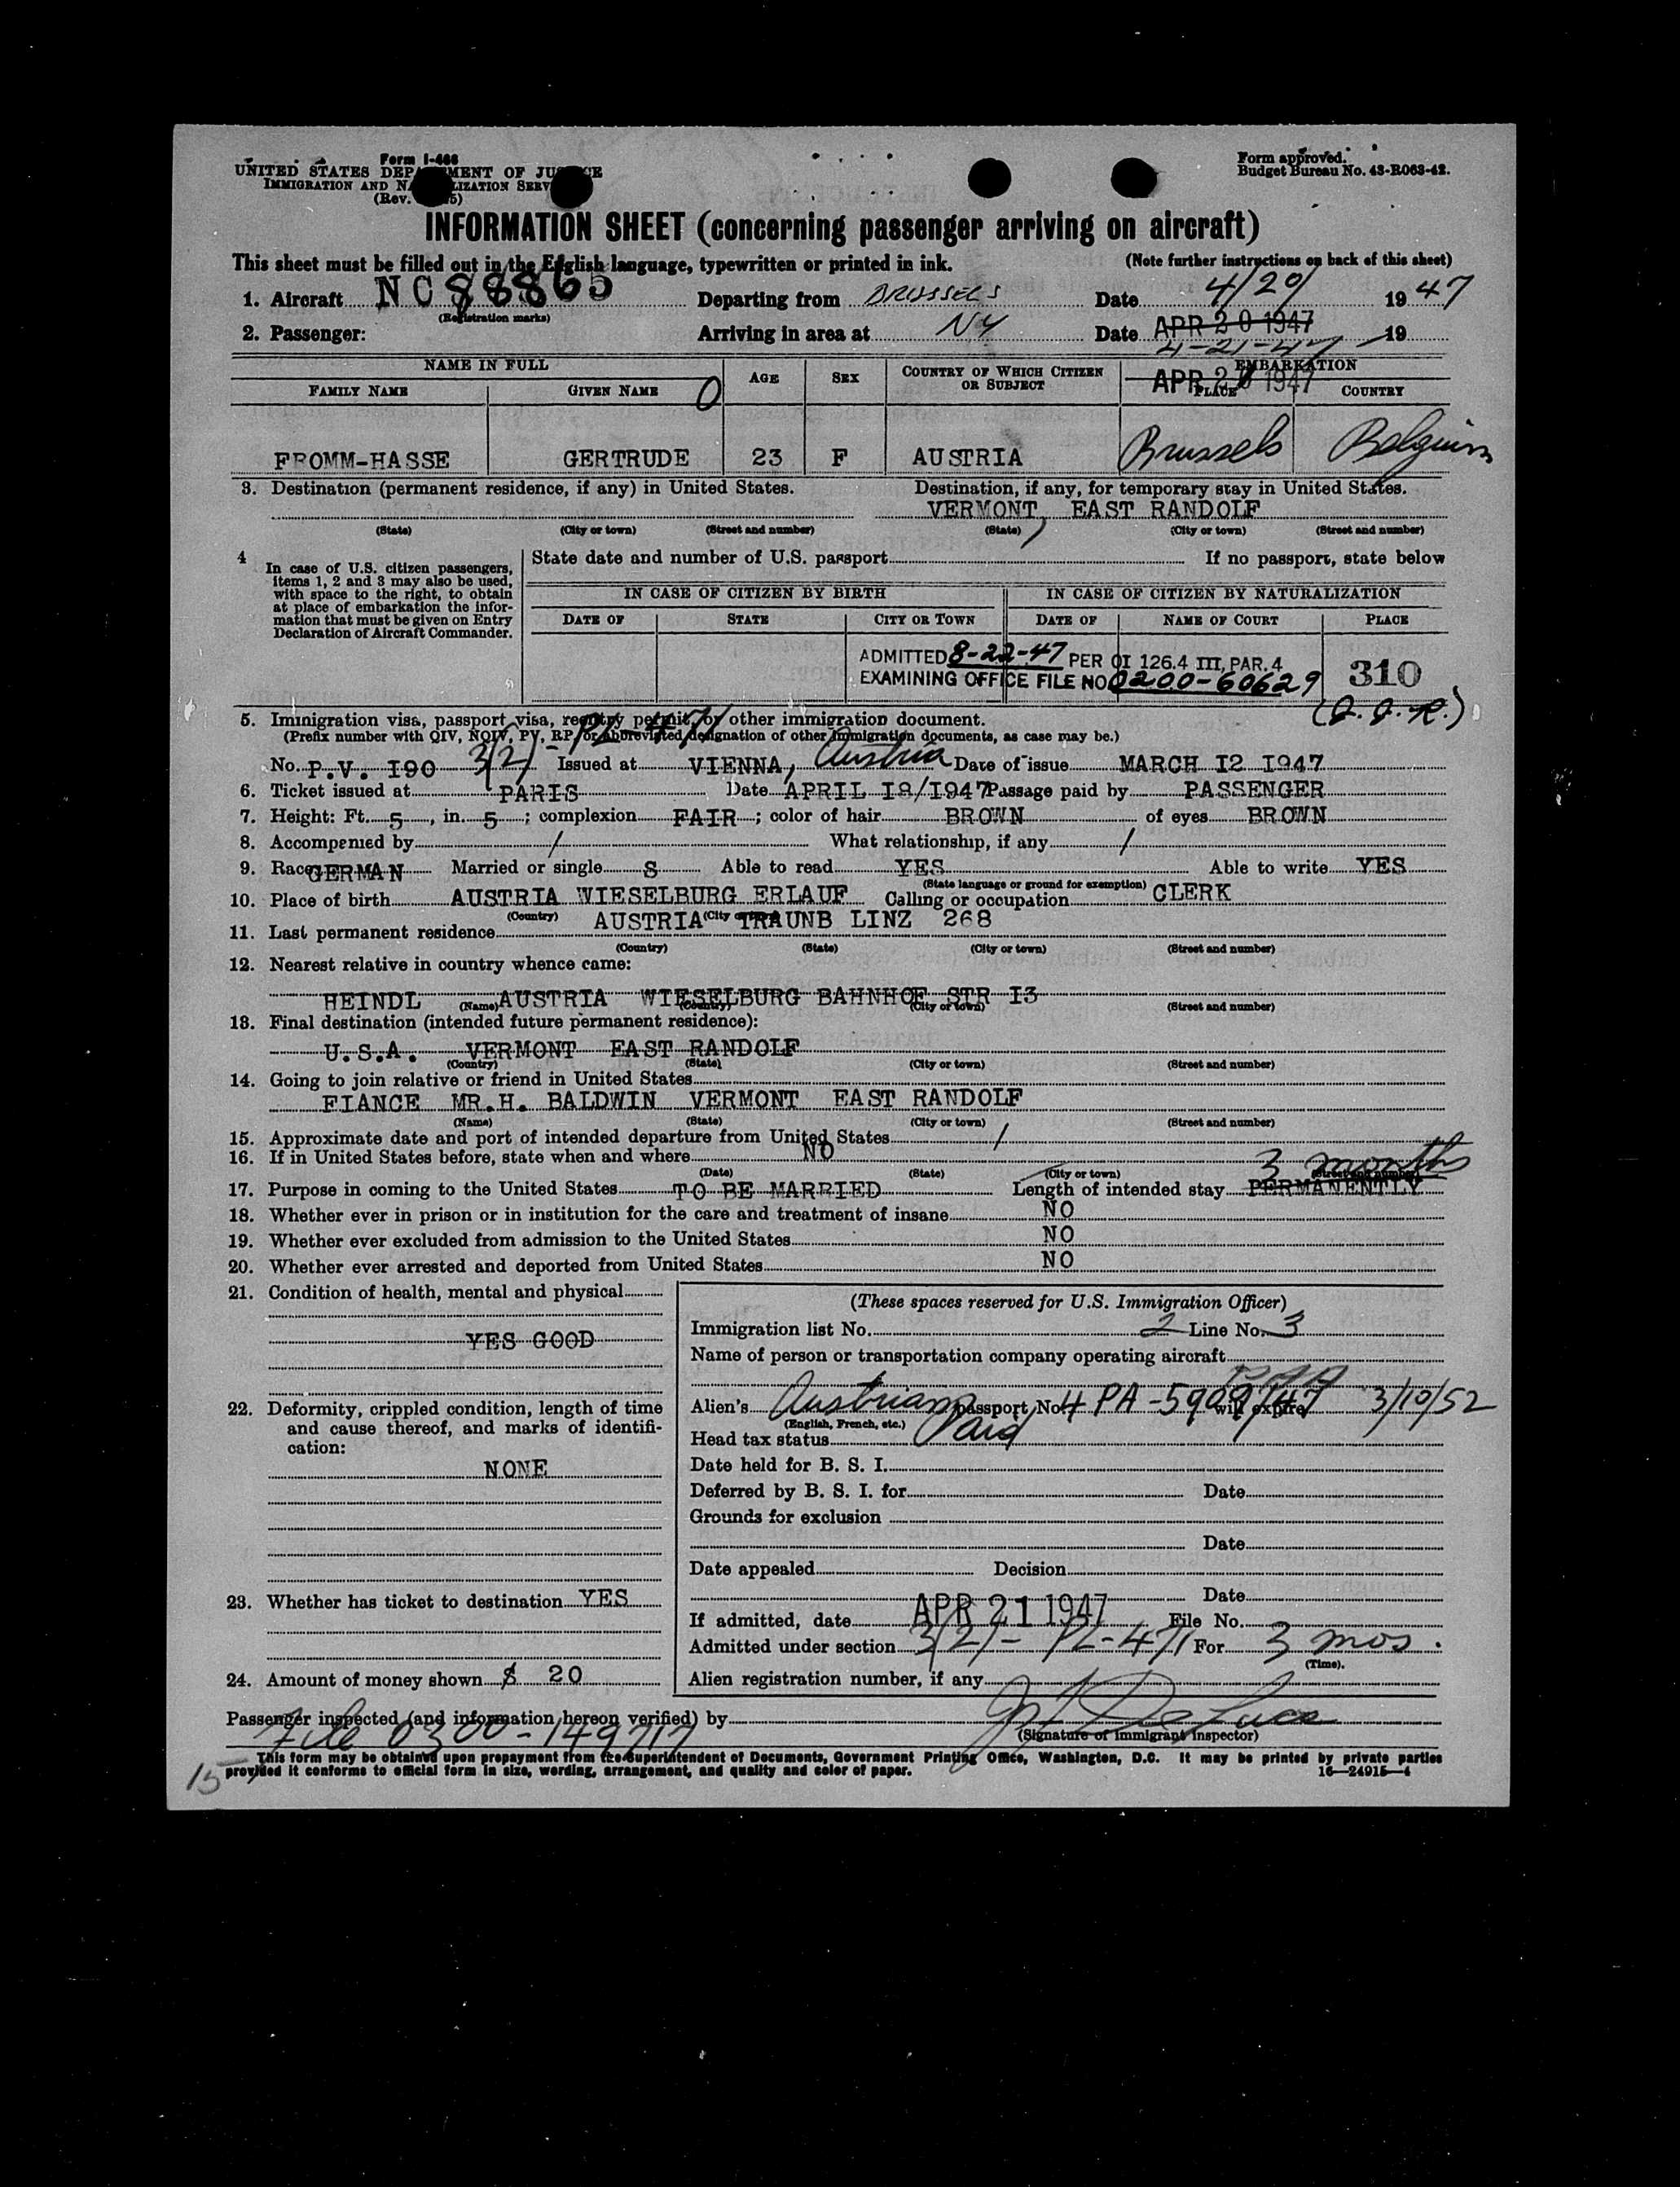 Form I-466
UNITED STATES DEPARTMENT OF JUSTICE
IMMIGRATION AND NATURALIZATION SERVICE
(Rev. 5)
Form approved.
Budget Bureau No. 43-R063-42.
INFORMATION SHEET (concerning passenger arriving on aircraft)
This sheet must be filled out in the English language, typewritten or printed in ink. (Note further instructions on back of this sheet)
1. Aircraft NC 88865 Departing from BRUSSELS Date 4/20/ 1947
(Registration marks)
2. Passenger: Arriving in area at NY Date APR 20 1947 19
4-21-47
NAME IN FULL AGE SEX COUNTRY OF WHICH CITIZEN OR SUBJECT EMBARKATION
APR 20 1947
FAMILY NAME GIVEN NAME PLACE COUNTRY
FROMM-HASSE GERTRUDE 23 F AUSTRIA Brussels Belgium
3. Destination (permanent residence, if any) in United States. Destination, if any, for temporary stay in United States.
VERMONT, EAST RANDOLF
(State) (City or town) (Street and number) (State) (City or town) (Street and number)
4 In case of U.S. citizen passengers, items 1, 2 and 3 may also be used, with space to the right, to obtain at place of embarkation the information that must be given on Entry Declaration of Aircraft Commander.
State date and number of U.S. passport If no passport, state below
IN CASE OF CITIZEN BY BIRTH IN CASE OF CITIZEN BY NATURALIZATION
DATE OF STATE CITY OR TOWN DATE OF NAME OF COURT PLACE
ADMITTED 8-22-47 PER OI 126.4 III, PAR. 4
EXAMINING OFFICE FILE NO 0200-60629 310
5. Immigration visa, passport visa, reentry permit, or other immigration document.
(Prefix number with QIV, NQIV, PV, RP, or abbreviated designation of other immigration documents, as case may be.)
No. P.V. I90 3(2) - PL-471 Issued at VIENNA, Austria Date of issue MARCH I2 I947
6. Ticket issued at PARIS Date APRIL I8/I947 Passage paid by PASSENGER
7. Height: Ft. 5, in. 5; complexion FAIR; color of hair BROWN of eyes BROWN
8. Accompanied by / What relationship, if any /
9. Race GERMAN Married or single S Able to read YES Able to write YES
(State language or ground for exemption)
10. Place of birth AUSTRIA WIESELBURG ERLAUF Calling or occupation CLERK
(Country) (City or town)
11. Last permanent residence AUSTRIA TRAUNB LINZ 268
(Country) (State) (City or town) (Street and number)
12. Nearest relative in country whence came:
HEINDL AUSTRIA WIESELBURG BAHNHOF STR I3
(Name) (Country) (City or town) (Street and number)
13. Final destination (intended future permanent residence):
U.S.A. VERMONT EAST RANDOLF
(Country) (State) (City or town) (Street and number)
14. Going to join relative or friend in United States
FIANCE MR.H. BALDWIN VERMONT EAST RANDOLF
(Name) (State) (City or town) (Street and number)
15. Approximate date and port of intended departure from United States /
16. If in United States before, state when and where NO
(Date) (State) (City or town) (Street and number)
3 months
17. Purpose in coming to the United States TO BE MARRIED Length of intended stay PERMANENTLY
18. Whether ever in prison or in institution for the care and treatment of insane NO
19. Whether ever excluded from admission to the United States NO
20. Whether ever arrested and deported from United States NO
21. Condition of health, mental and physical
YES GOOD
22. Deformity, crippled condition, length of time and cause thereof, and marks of identification:
NONE
23. Whether has ticket to destination YES
24. Amount of money shown $ 20
(These spaces reserved for U.S. Immigration Officer)
Immigration list No. 2 Line No. 3
Name of person or transportation company operating aircraft
Alien's Austrian passport No. will expire 3/10/52
(English, French, etc.)
Head tax status Paid
Date held for B. S. I.
Deferred by B. S. I. for Date
Grounds for exclusion
Date
Date appealed Decision
Date
If admitted, date APR 21 1947 File No.
Admitted under section 3(2)- PL-471 For 3 mos.
(Time).
Alien registration number, if any
Passenger inspected (and information hereon verified) by
(Signature of immigrant inspector)
File 0300-149717
15
This form may be obtained upon prepayment from the Superintendent of Documents, Government Printing Office, Washington, D.C. It may be printed by private parties
provided it conforms to official form in size, wording, arrangement, and quality and color of paper. 16—24915-4